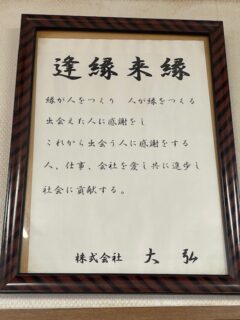 逢縁来縁
縁が人をつくり 人が縁をつくる
出会えた人に感謝をし
これから出会う人に感謝をする
人、仕事、会社を愛し共に進歩し
社会に貢献する。
株式会社 大弘